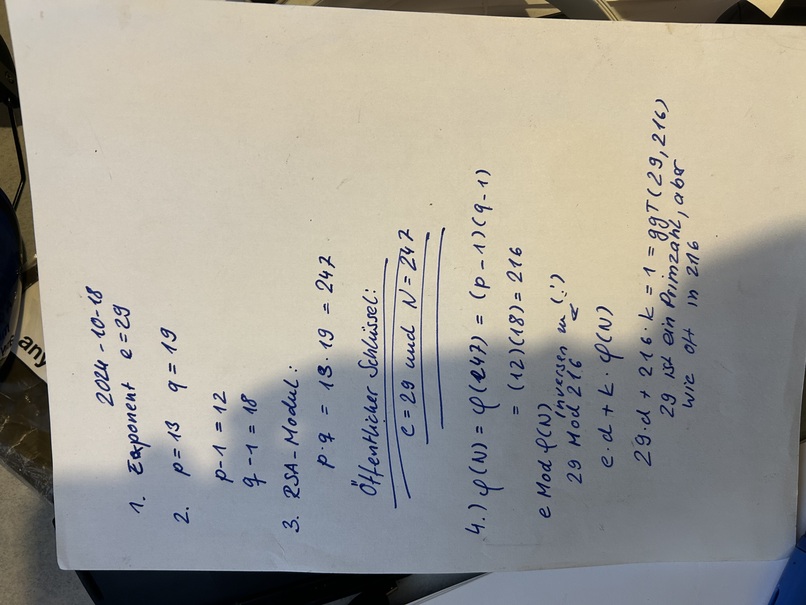 2024-10-18
1. Exponent e=29
2. p=13 q=19
p-1=12
q-1=18
3. RSA-Modul:
p·q = 13·19 = 247
Öffentlicher Schlüssel:
e=29 und N=247
4.) φ(N) = φ(247) = (p-1)(q-1)
= (12)(18) = 216
e Mod φ(N)
29 Mod 216 Inversen (!)
e·d + k·φ(N)
29·d + 216·k = 1 = ggT(29, 216)
29 ist ein Primzahl, aber
wie oft in 216
any